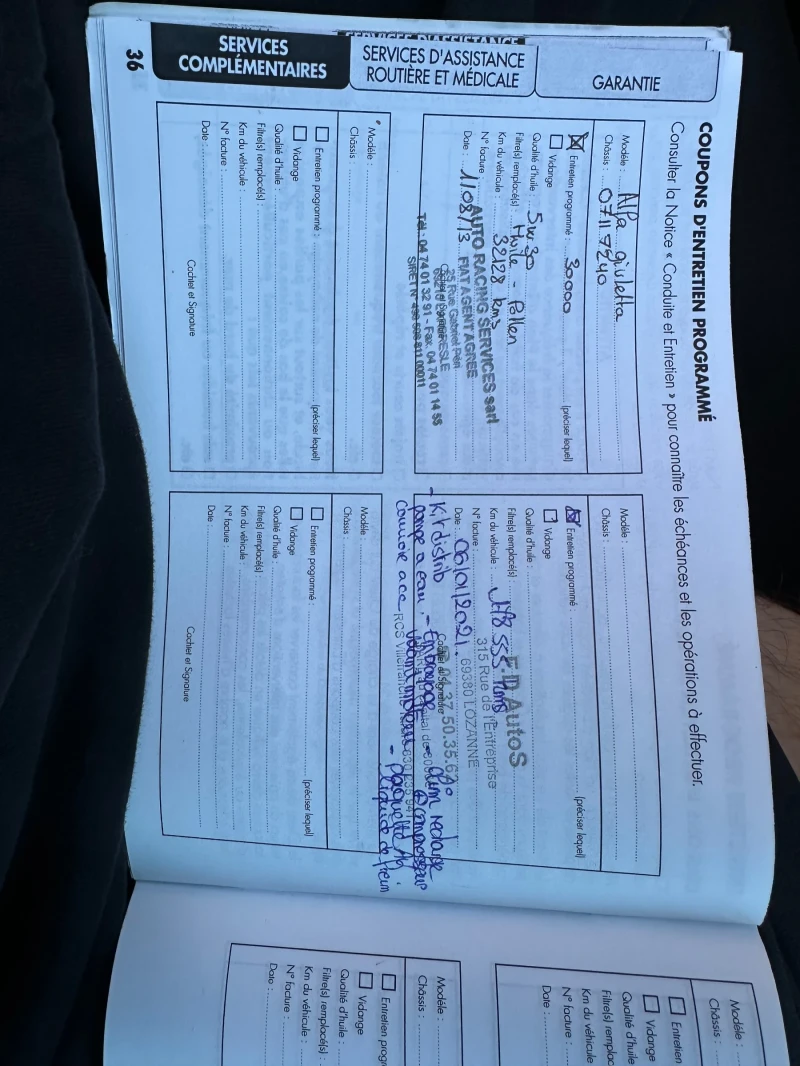 SERVICES D'ASSISTANCE
SERVICES
COMPLÉMENTAIRES
SERVICES D'ASSISTANCE
ROUTIÈRE ET MÉDICALE
GARANTIE
36
COUPONS D'ENTRETIEN PROGRAMMÉ
Consulter la Notice « Conduite et Entretien » pour connaître les échéances et les opérations à effectuer.
Modèle : Alfa giuletta
Châssis : 07117240
Entretien programmé : 30000
(préciser lequel)
Vidange
Qualité d'huile : 5w30
Filtre(s) remplacé(s) : Huile - Pollen
Km du véhicule : 32128 kms
N° facture :
Date : 1108/13
Cachet et Signature
AUTO RACING SERVICES sarl
FIAT AGENT AGREE
25 Rue Gabriel Péri
Tél : 04 74 01 32 91 - Fax. 04 74 01 14 56
Modèle :
Châssis :
Entretien programmé :
(préciser lequel)
Vidange
Qualité d'huile :
Filtre(s) remplacé(s) :
Km du véhicule : 178 555 Kms
N° facture :
Date : 06/01/2021.
Cachet et Signature
F.D AutoS
315 Rue de l'Entreprise
69380 LOZANNE
- Kit distrib
pompe a eau. - Embrayage
courroie acc
- Plaquette AV.
liquide de frein
Modèle :
Châssis :
Entretien programmé :
(préciser lequel)
Vidange
Qualité d'huile :
Filtre(s) remplacé(s) :
Km du véhicule :
N° facture :
Date :
Cachet et Signature
Modèle :
Châssis :
Entretien programmé :
(préciser lequel)
Vidange
Qualité d'huile :
Filtre(s) remplacé(s) :
Km du véhicule :
N° facture :
Date :
Cachet et Signature
Modèle :
Châssis :
Entretien
Vidange
Qualité d'huile
Filtre(s) remplac
Km du véhicule
N° facture :
Date :
Modèle :
Châssis :
Entretien prog
Vidange
Qualité d'huile :
Filtre(s) remplacé(s) :
Km du véhicule :
N° facture :
Date :